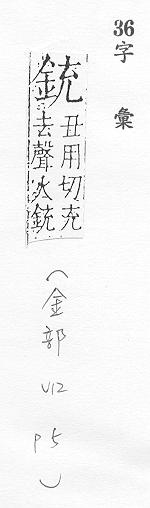 36
字彙
銃
丑用切充
去聲火銃
(金部
V12
P5)